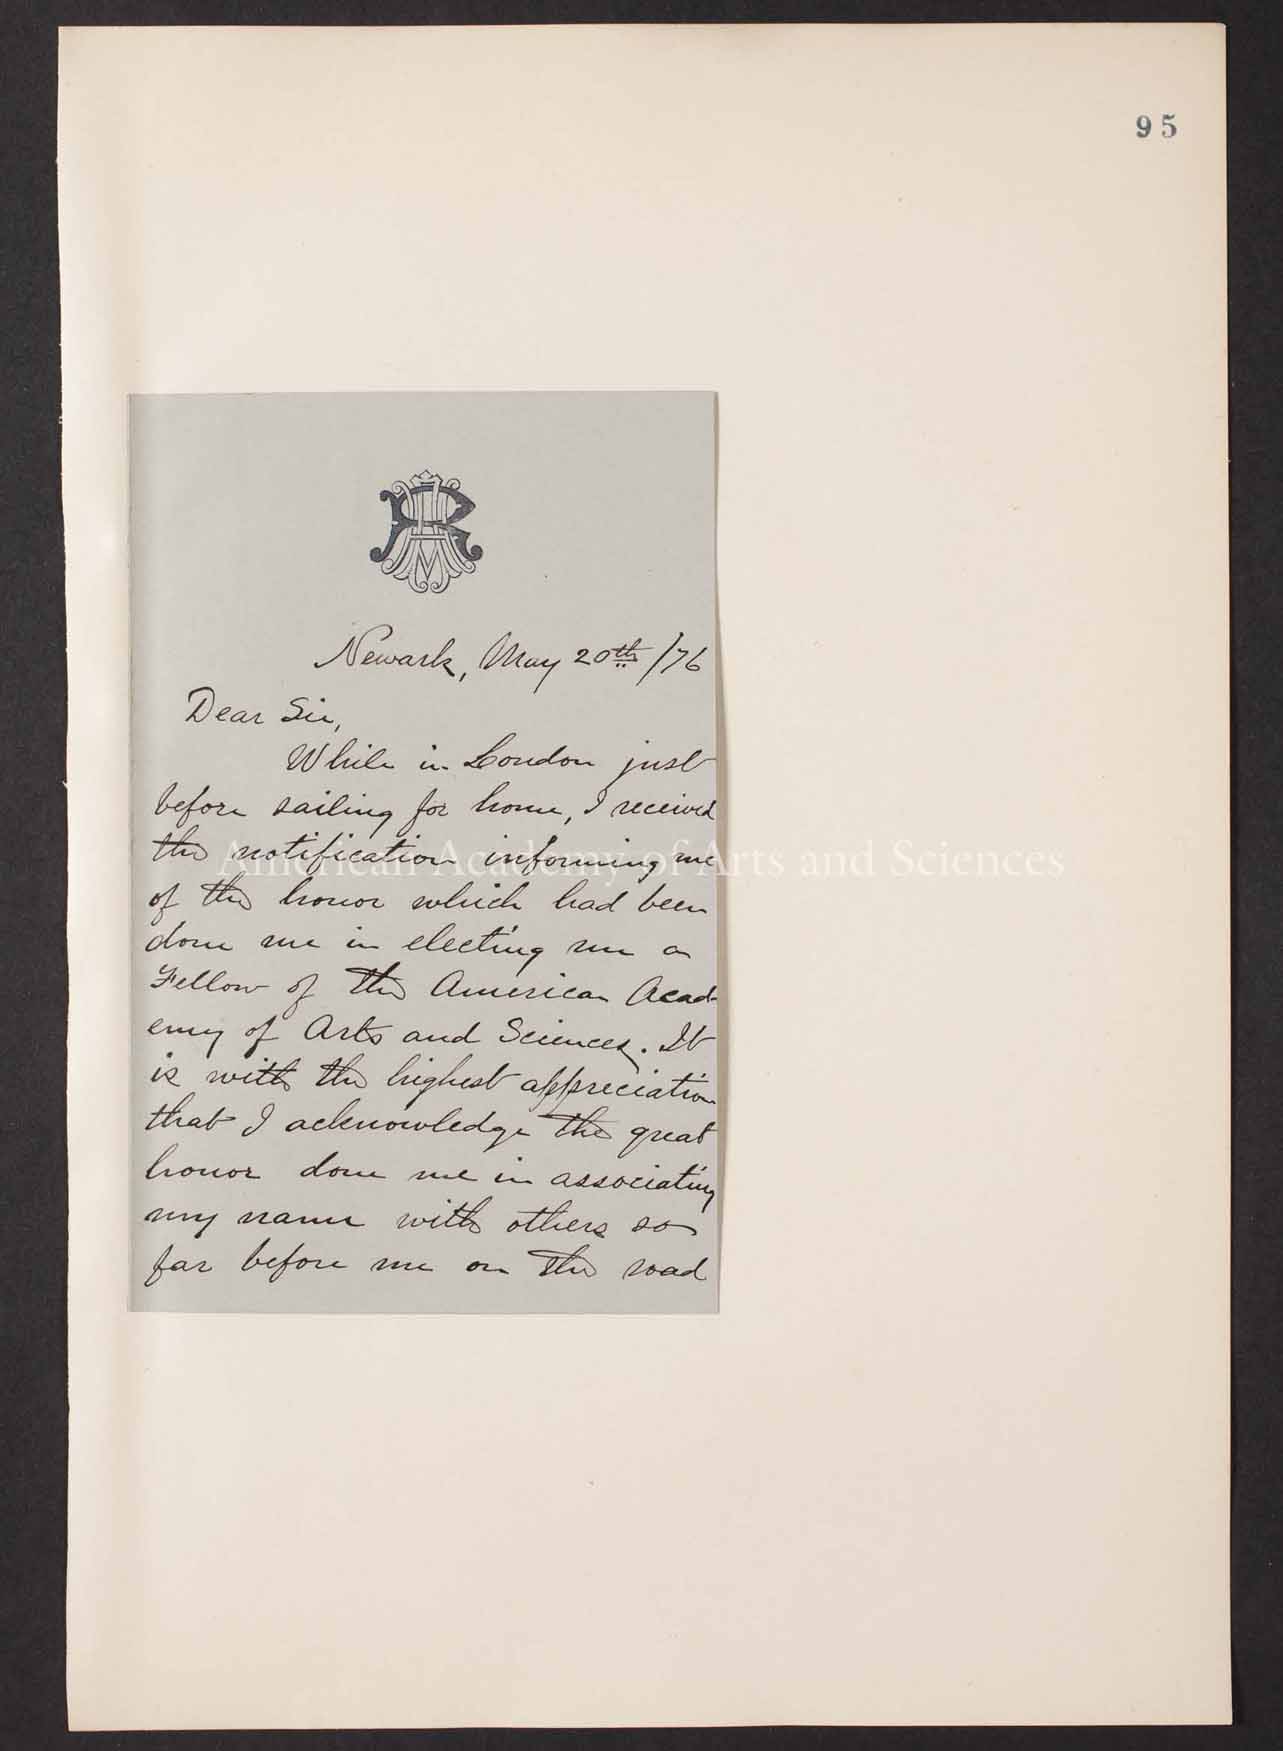 95
Newark, May 20th /76
Dear Sir,
While in London just
before sailing for home, I received
the notification informing me
of the honor which had been
done me in electing me a
Fellow of the American Acad-
emy of Arts and Sciences. It
is with the highest appreciation
that I acknowledge the great
honor done me in associating
my name with others so
far before me on the road
American Academy of Arts and Sciences